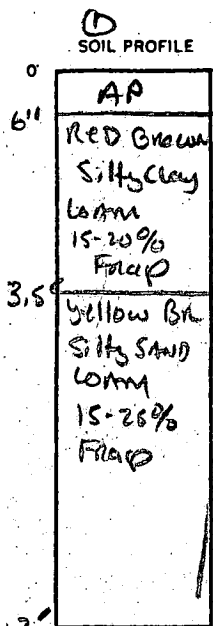 ①
SOIL PROFILE
0
AP
6"
RED BROWN
Silty Clay
LOAM
15-20%
Frag
3.5'
Yellow BR
Silty SAND
LOAM
15-25%
Frag